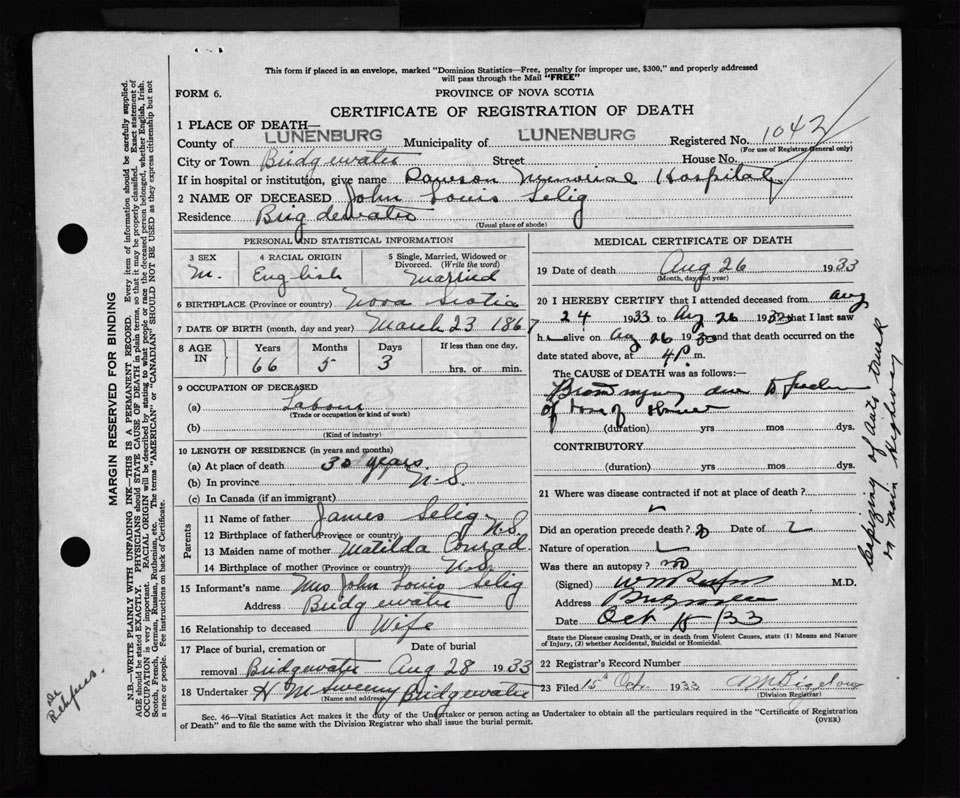 This form if placed in an envelope, marked "Dominion Statistics—Free, penalty for improper use, $300," and properly addressed
will pass through the Mail "FREE"
FORM 6.
PROVINCE OF NOVA SCOTIA
CERTIFICATE OF REGISTRATION OF DEATH
1 PLACE OF DEATH—
County of LUNENBURG Municipality of LUNENBURG Registered No. 1042
(For use of Registrar General only)
City or Town Bridgewater Street House No.
If in hospital or institution, give name Dawson Memorial Hospital
2 NAME OF DECEASED John Louis Selig
Residence Brigdewater
(Usual place of abode)
PERSONAL AND STATISTICAL INFORMATION
3 SEX 4 RACIAL ORIGIN 5 Single, Married, Widowed or
Divorced. (Write the word)
M. English Married
6 BIRTHPLACE (Province or country) Nova Scotia
7 DATE OF BIRTH (month, day and year) March 23 1867
8 AGE IN Years Months Days If less than one day,
66 5 3 hrs. or min.
9 OCCUPATION OF DECEASED
(a) Labour
(Trade or occupation or kind of work)
(b)
(Kind of industry)
10 LENGTH OF RESIDENCE (in years and months)
(a) At place of death 30 years.
(b) In province N.S.
(c) In Canada (if an immigrant)
Parents
11 Name of father James Selig
12 Birthplace of father (Province or country) N.S
13 Maiden name of mother Matilda Conrad
14 Birthplace of mother (Province or country) N.S.
15 Informant's name Mrs John Louis Selig
Address Bridgewater
16 Relationship to deceased Wife
17 Place of burial, cremation or Date of burial
removal Bridgewater Aug 28 1933
18 Undertaker H Bridgewater
(Name and address)
MEDICAL CERTIFICATE OF DEATH
19 Date of death Aug 26 1933
(Month, day and year)
20 I HEREBY CERTIFY that I attended deceased from Aug
24 1933 to Aug 26 1933 that I last saw
h alive on Aug 26 1933 and that death occurred on the
date stated above, at 4 p. m.
The CAUSE OF DEATH was as follows:—
due to
of
(duration) yrs mos dys.
CONTRIBUTORY
(duration) yrs mos dys.
21 Where was disease contracted if not at place of death?
Did an operation precede death? Date of
Nature of operation
Was there an autopsy? no
(Signed) M.D.
Address
Date Oct 15/33
State the Disease causing Death, or in death from Violent Causes, state (1) Means and Nature
of Injury, (2) whether Accidental, Suicidal or Homicidal.
22 Registrar's Record Number
23 Filed 15th Oct. 1933
(Division Registrar)
Sec. 46—Vital Statistics Act makes it the duty of the Undertaker or person acting as Undertaker to obtain all the particulars required in the "Certificate of Registration
of Death" and to file the same with the Division Registrar who shall issue the burial permit. (OVER)
MARGIN RESERVED FOR BINDING
N.B.—WRITE PLAINLY WITH UNFADING INK—THIS IS A PERMANENT RECORD. Every item of information should be carefully supplied.
AGE should be stated EXACTLY. PHYSICIANS should STATE CAUSE OF DEATH in plain terms, so that it may be properly classified. Exact statement of
OCCUPATION is very important. RACIAL ORIGIN will be described by stating to what people or race the deceased person belonged, whether English, Irish,
Scotch, French, German, Russian, Ruthenian, etc. The terms "AMERICAN" or "CANADIAN" SHOULD NOT BE USED as they express citizenship but not
a race or people. See instructions on back of Certificate.
of auto truck
on main highway